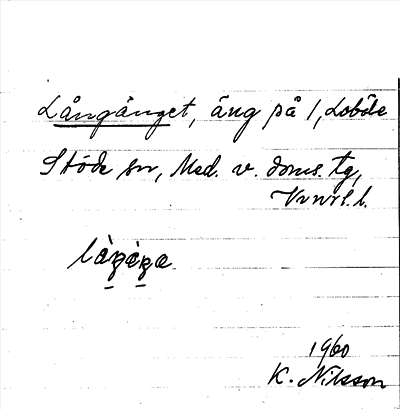 Långänget, äng på 1, Loböle
Stöde sn, Med. v. doms. tg,
Vvnrl. l.
1960
K. Nilsson